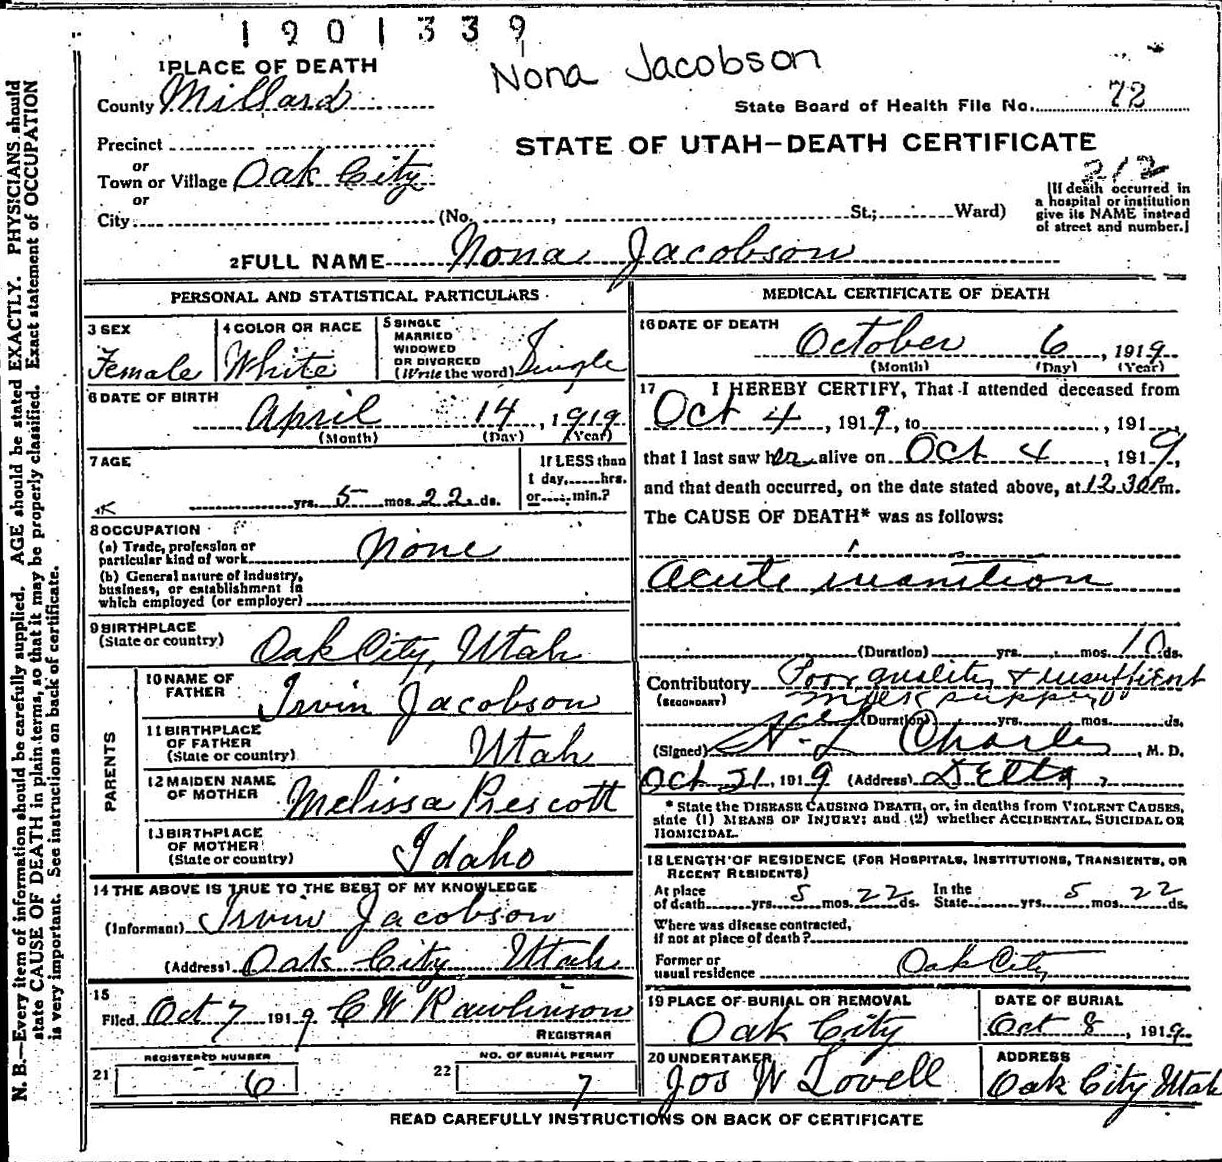 1901339
Nona Jacobson
1 PLACE OF DEATH
County Millard
State Board of Health File No. 72
Precinct
or
Town or Village Oak City
or
City (No. , St.; Ward)
STATE OF UTAH—DEATH CERTIFICATE
212
[If death occurred in
a hospital or institution
give its NAME instead
of street and number.]
2 FULL NAME Nona Jacobson
PERSONAL AND STATISTICAL PARTICULARS
3 SEX
Female
4 COLOR OR RACE
White
5 SINGLE
MARRIED
WIDOWED
OR DIVORCED
(Write the word) Single
6 DATE OF BIRTH
April 14, 1919
(Month) (Day) (Year)
7 AGE
yrs. 5 mos. 22 ds.
If LESS than
1 day, hrs.
or min.?
8 OCCUPATION
(a) Trade, profession or
particular kind of work None
(b) General nature of industry,
business, or establishment in
which employed (or employer)
9 BIRTHPLACE
(State or country) Oak City, Utah
PARENTS
10 NAME OF
FATHER Irvin Jacobson
11 BIRTHPLACE
OF FATHER
(State or country) Utah
12 MAIDEN NAME
OF MOTHER Melissa Prescott
13 BIRTHPLACE
OF MOTHER
(State or country) Idaho
14 THE ABOVE IS TRUE TO THE BEST OF MY KNOWLEDGE
(Informant) Irvin Jacobson
(Address) Oak City Utah
15
Filed Oct 7 1919 C W Rawlinson
REGISTRAR
REGISTERED NUMBER
21 6
NO. OF BURIAL PERMIT
22 7
MEDICAL CERTIFICATE OF DEATH
16 DATE OF DEATH
October 6, 1919
(Month) (Day) (Year)
17 I HEREBY CERTIFY, That I attended deceased from
Oct 4, 1919, to , 191 ,
that I last saw her alive on Oct 4, 1919,
and that death occurred, on the date stated above, at 12.30 P.m.
The CAUSE OF DEATH* was as follows:
Acute inanition
(Duration) yrs. mos. 10 ds.
Contributory Poor quality & insufficient
(SECONDARY) milk supply
(Duration) yrs. mos. ds.
(Signed) Charles, M. D.
Oct 21, 1919 (Address) Delta
* State the DISEASE CAUSING DEATH, or, in deaths from VIOLENT CAUSES,
state (1) MEANS OF INJURY; and (2) whether ACCIDENTAL, SUICIDAL OR
HOMICIDAL.
18 LENGTH OF RESIDENCE (FOR HOSPITALS, INSTITUTIONS, TRANSIENTS, OR
RECENT RESIDENTS)
At place
of death yrs. 5 mos. 22 ds.
In the
State yrs. 5 mos. 22 ds.
Where was disease contracted,
if not at place of death?
Former or
usual residence Oak City
19 PLACE OF BURIAL OR REMOVAL
Oak City
DATE OF BURIAL
Oct 8, 1919
20 UNDERTAKER
Jos W Lovell
ADDRESS
Oak City Utah
READ CAREFULLY INSTRUCTIONS ON BACK OF CERTIFICATE
N. B.—Every item of information should be carefully supplied. AGE should be stated EXACTLY. PHYSICIANS should
state CAUSE OF DEATH in plain terms, so that it may be properly classified. Exact statement of OCCUPATION
is very important. See instructions on back of certificate.